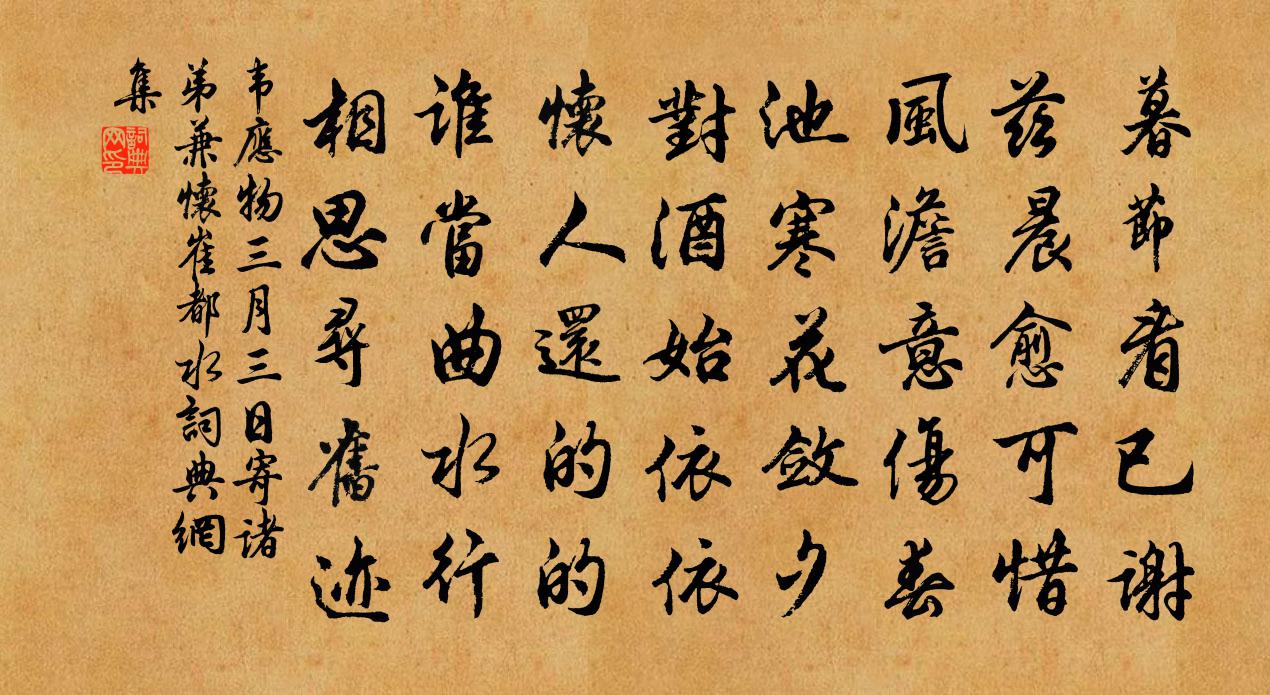 暮節看已謝
茲晨愈可惜
風澹意傷春
池寒花斂夕
對酒始依依
懷人還的的
誰當曲水行
相思尋舊迹
韦應物三月三日寄諸
弟兼懷崔都水詞典網
集
詞典网印